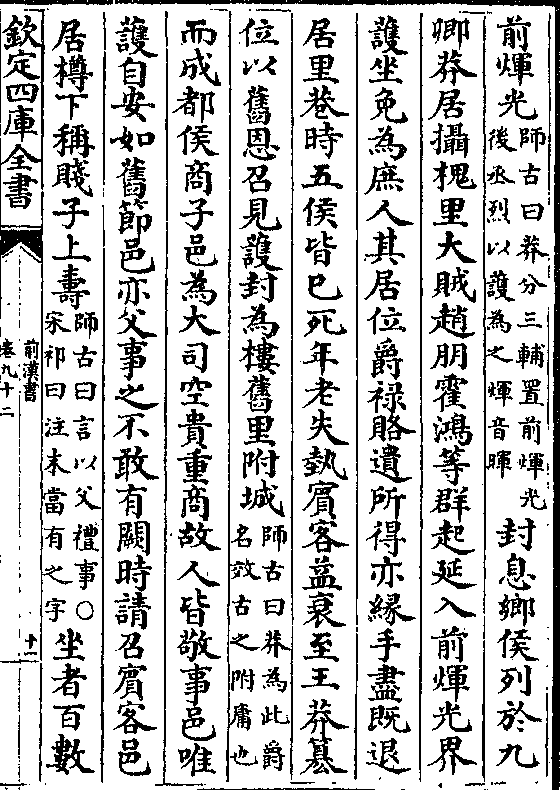 前煇光師古曰莽分三輔置前煇光後丞烈以護為之煇音暉封息鄉侯列於九
卿莽居攝槐里大賊趙朋霍鴻等群起延入前煇光界
護坐免為庶人其居位爵祿賂遺所得亦緣手盡既退
居里巷時五侯皆已死年老失埶賓客益衰至王莽簒
位以舊恩召見護封為樓舊里附城師古曰莽為此爵名效古之附庸也
而成都侯商子邑為大司空貴重商故人皆敬事邑唯
護自安如舊節邑亦父事之不敢有闕時請召賓客邑
居樽下稱賤子上壽師古曰言以父禮事○宋祁曰注末當有之字坐者百數
欽定四庫全書
前漢書
卷九十二
十一